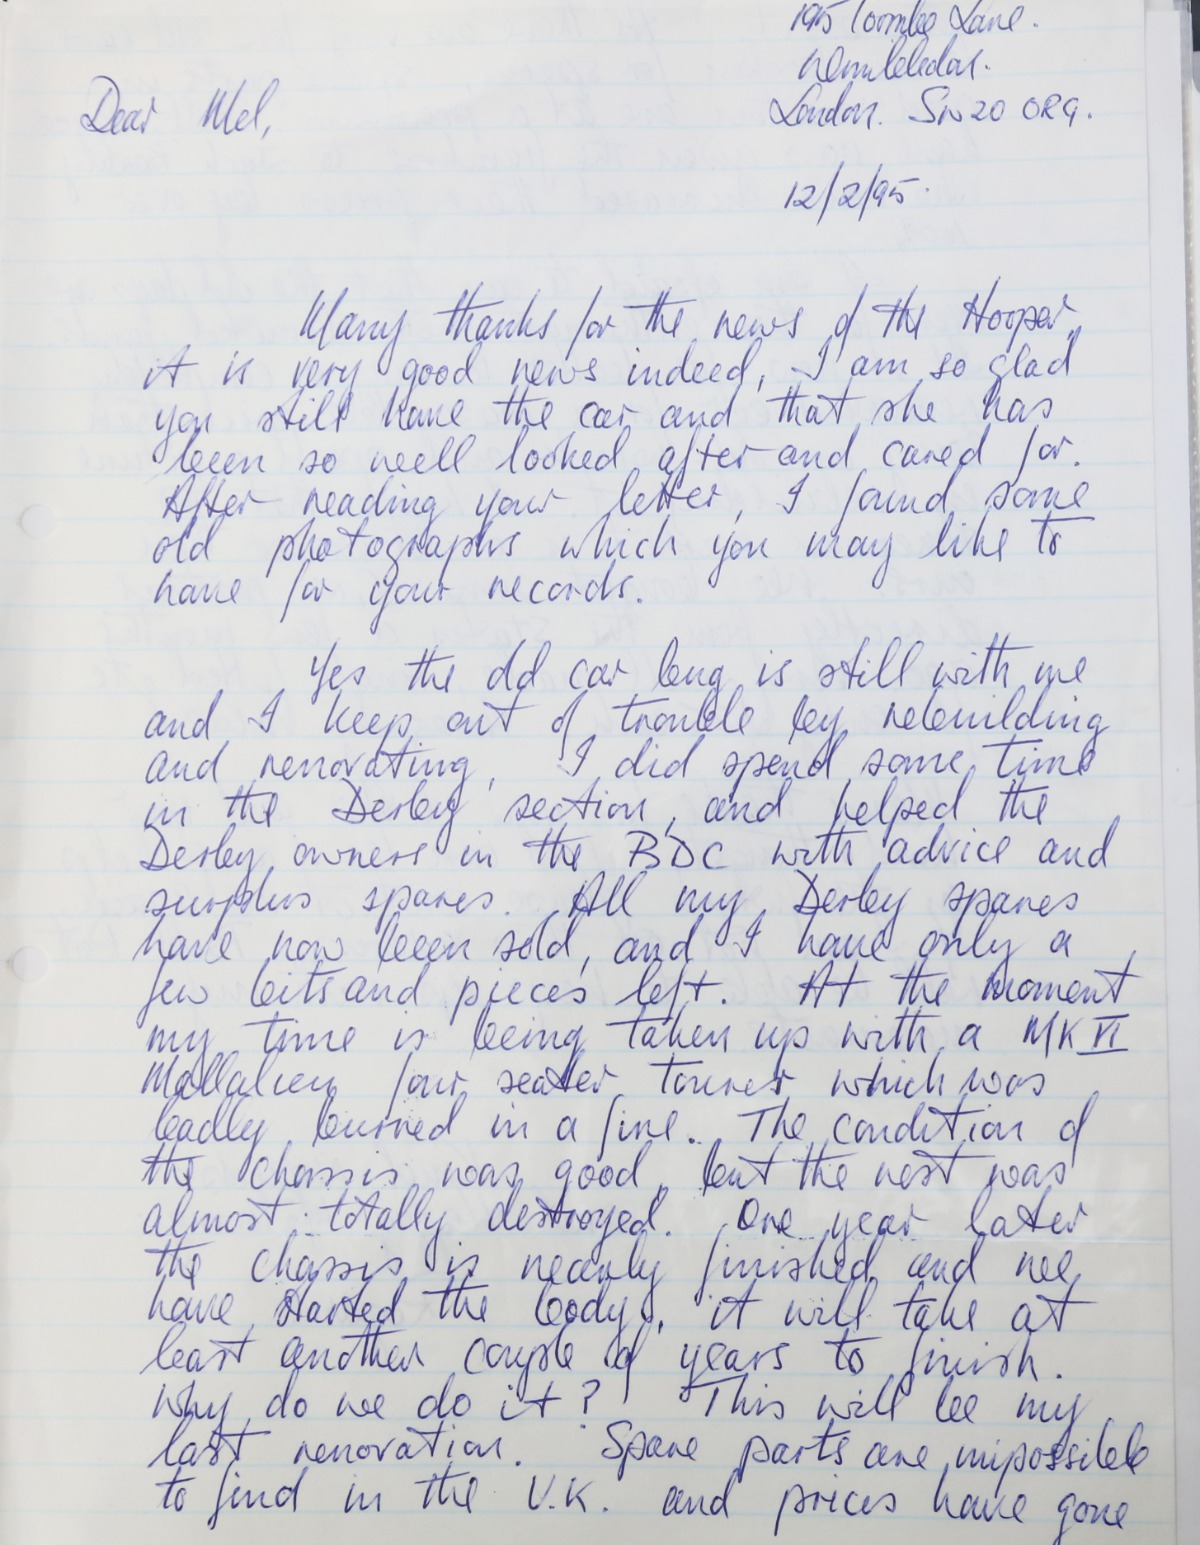 195 Coombe Lane.
Wimbledon.
London. SW20 0RG.
Dear Mel,
12/2/95.
Many thanks for the news of the Hooper,
it is very good news indeed, I am so glad
you still have the car and that she has
been so well looked after and cared for.
After reading your letter, I found some
old photographs which you may like to
have for your records.
Yes the old car bug is still with me
and I keep out of trouble by rebuilding
and renovating, I did spend some time
in the Derby section, and helped the
Derby owners in the BDC with advice and
surplus spares. All my Derby spares
have now been sold, and I have only a
few bits and pieces left. At the moment
my time is being taken up with a MK VI
Mallalieu four seater tourer which was
badly burned in a fire. The condition of
the chassis was good, but the rest was
almost totally destroyed. One year later
the chassis is nearly finished and we
have started the body, it will take at
least another couple of years to finish.
Why do we do it? This will be my
last renovation. Spare parts are impossible
to find in the U.K. and prices have gone